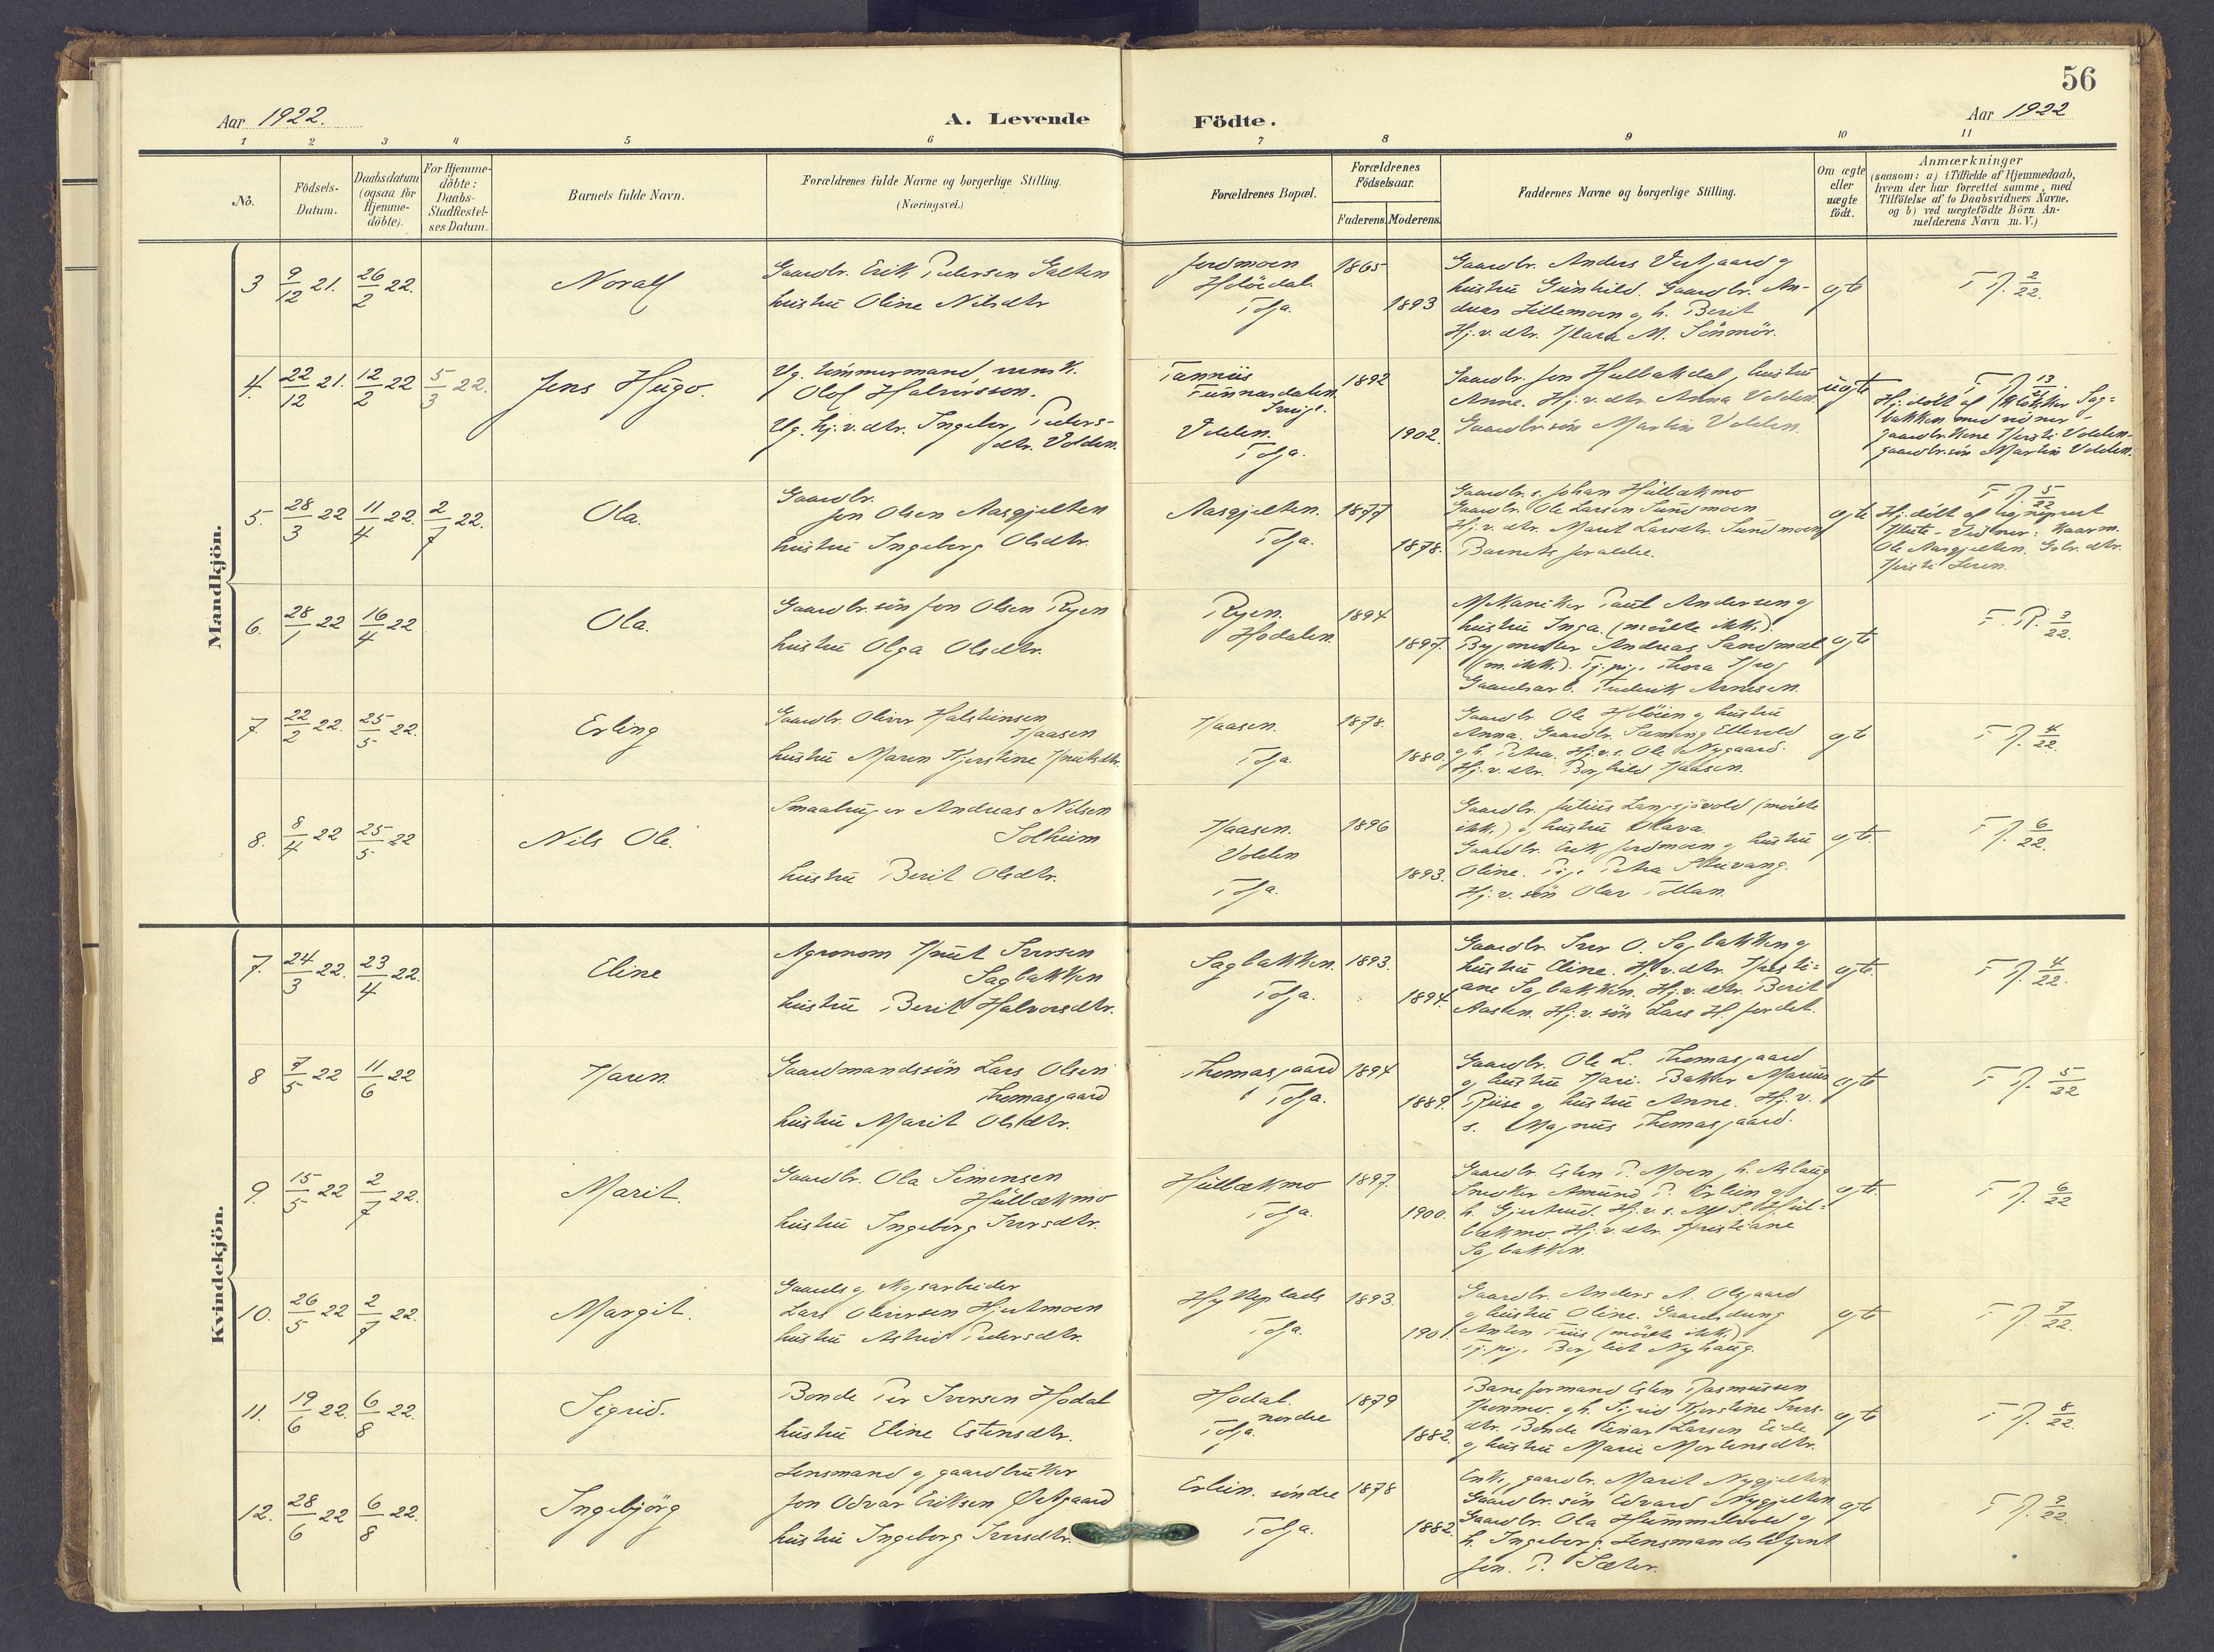 56
Aar 1922.
A. Levende
Födte.
Aar 1922
1 2 3 4 5 6 7 8 9 10 11
No.
Födsels-
Datum.
Daabsdatum
(ogsaa for
Hjemme-
döbte).
For Hjemme-
döbte:
Daabs-
Stadfæstel-
ses Datum.
Barnets fulde Navn.
Forældrenes fulde Navne og borgerlige Stilling.
(Næringsvei.)
Forældrenes Bopæl.
Forældrenes
Födselsaar.
Faderens. Moderens.
Faddernes Navne og borgerlige Stilling.
Om ægte
eller
uægte
födt.
Anmærkninger
(saasom: a) i Tilfælde af Hjemmedaab,
hvem der har forrettet samme, med
Tilföielse af to Daabsvidners Navne,
og b) ved uægtefödte Börn An-
melderens Navn m. V.)
Mandkjön.
3 9/12 21. 26/2 22.
Norall
Gaardbr. Erik Pedersen Galten
hustru Oline Nilsdtr
Jordmoen
Tolga.
1865
1893
Gaardbr. Anders Vestgaard og
hustru Gunhild. Gaardbr. An-
dreas Lillemoen og h. Berit
Hj. v. dtr. Klara M.
ægte
2/22.
4. 22/12 21. 12/2 22 5/3 22.
Jens Hugo.
Ug. tömmermand svensk.
Olof Halvarsson.
Ug. hj. v. dtr. Ingebor, Peders-
dtr. Volden.
Tännäs
Funnäsdalen
Sverige.
Volden.
Tolga.
1892
1902.
Gaardbr. Jon Hulbækdal, hustru
Anne. Hj. v. dtr. Anna Volden
Gaardbr.sön Martin Volden.
uægte
13/21
Hj. döbt af Klokker Sag-
bakken med vidner
gaardbr.kone Kersti Volden-
gaardbr.sön Martin Volden.
5. 28/3 22 11/4 22. 2/7 22.
Ola.
Gaardbr.
Jon Olsen Aasgjelten
hustru Ingeborg Olsdtr.
Aasgjelten.
Tolga.
1877
1878.
Gaardbr. s. Johan Hulbækmo
Gaardbr. Ole Larsen Sundmoen
Hj. v. dtr. Marit Larsdtr. Sundmoen
Barnets forældre.
ægte
5/22
Hj. döbt af sogneprest
Vidner:
Ole Aasgjelten. Gbr. dtr.
Kersti
6. 28/1 22 16/4 22
Ola.
Gaardbr. sön Jon Olsen Ryen
hustru Olga Olsdtr.
Ryen.
Hodalen.
1894
1897.
Mekaniker Paul Andersen og
hustru Inga (mödte ikke).
Bygmester Andreas Sandmæl
(m. ikke). Tj. pige Thora
Gaardsarb. Fredrik Arnesen.
ægte
3/22.
7. 22/2 22. 25/5 22.
Erling
Gaardbr. Oliver Halstensen
Kaasen
hustru Maren Kjerstine Knutsdtr.
Kaasen.
Tolga.
1878.
1880.
Gaardbr. Ole og hustru
Anna. Gaardbr. Sæming
og h. Petra. Hj. v. s. Ole Nygaard.
Hj. v. dtr. Borghild Kaasen.
ægte
4/22.
8. 8/4 22 25/5 22
Nils Ole.
Smaabruger Andreas Nilsen
Solheim
hustru Berit Olsdtr.
Kaasen.
Volden
Tolga.
1896
1893.
Gaardbr. Julius Langsjövold (mödte
ikke) og hustru Olava.
Gaardbr. Erik Jordmoen og hustru
Oline. Pige Petra
Hj. v. sön Olav Tollan.
ægte.
6/22.
Kvindekjön.
7. 24/3 22. 23/4 22.
Eline
Agronom Knut Iversen
Sagbakken
hustru Berit Halvorsdtr.
Sagbakken.
Tolga.
1893.
1894.
Gaardbr. Iver O. Sagbakken og
hustru Eline. Hj. v. dtr. Kristi-
ane Sagbakken. Hj. v. dtr. Berit
Aasen. Hj. v. sön Lars H. Jordet.
ægte.
4/22.
8 7/5 22 11/6 22
Karen.
Gaardmandssön Lars Olsen
Thomasgaard
hustru Marit Olsdtr.
Thomasgaard
Tolga.
1894
1889.
Gaardbr. Ole L. Thomasgaard
og hustru Kari. Baker Marius
Riise og hustru Anne. Hj. v.
s. Magnus Thomasgaard.
ægte
5/22
9. 15/5 22 2/7 22.
Marit.
Gaardbr. Ola Simensen
Hulbækmo
hustru Ingeborg Iversdtr.
Hulbækmo
Tolga.
1897.
1900.
Gaardbr. Esten P. Moen, h. Aslaug
Snedker Amund P. Erlien og
h. Gjertrud. Hj. v. s. S. Hul-
bækmo. Hj. v. dtr. Kristiane
Sagbakken.
ægte.
6/22
10. 26/5 22 2/7 22.
Margit.
Gaards og Mysarbeider
Lars Oliversen Hjertmoen
hustru Astrid Pedersdtr.
Hytteplads
Tolga.
1893.
1901.
Gaardbr. Anders A. Olsgaard
og hustru Oline. Gaardsdreng
Anton (mödte ikke)
Tj. pige Berglist Nyhaug.
ægte
7/22.
11. 19/6 22. 6/8 22.
Sigrid.
Bonde Per Iversen Hodal
hustru Eline Estensdtr.
Hodal.
nordre
Tolga.
1879
1882.
Baneformand Esten Rasmussen
og h. Sigrid Kjerstine Ivers-
dtr. Bonde Einar Larsen Eide
og hustru Marie Mortensdtr.
ægte
8/22.
12. 28/6 22 6/8 22.
Ingebjörg
Lensmand og gaardbruker
Jon Odvar Eriksen
hustru Ingeborg Iversdtr.
Erlien. söndre
Tolga.
1878
1882.
Enke, gaardbr. Marit Nygjelten
Gaardbr. sön Edvard Nygjelten
Gaardbr. Ola Hummelvold og
h. Ingeborg. Lensmandsbetjent
Jon. P. Sæter.
ægte
9/22.